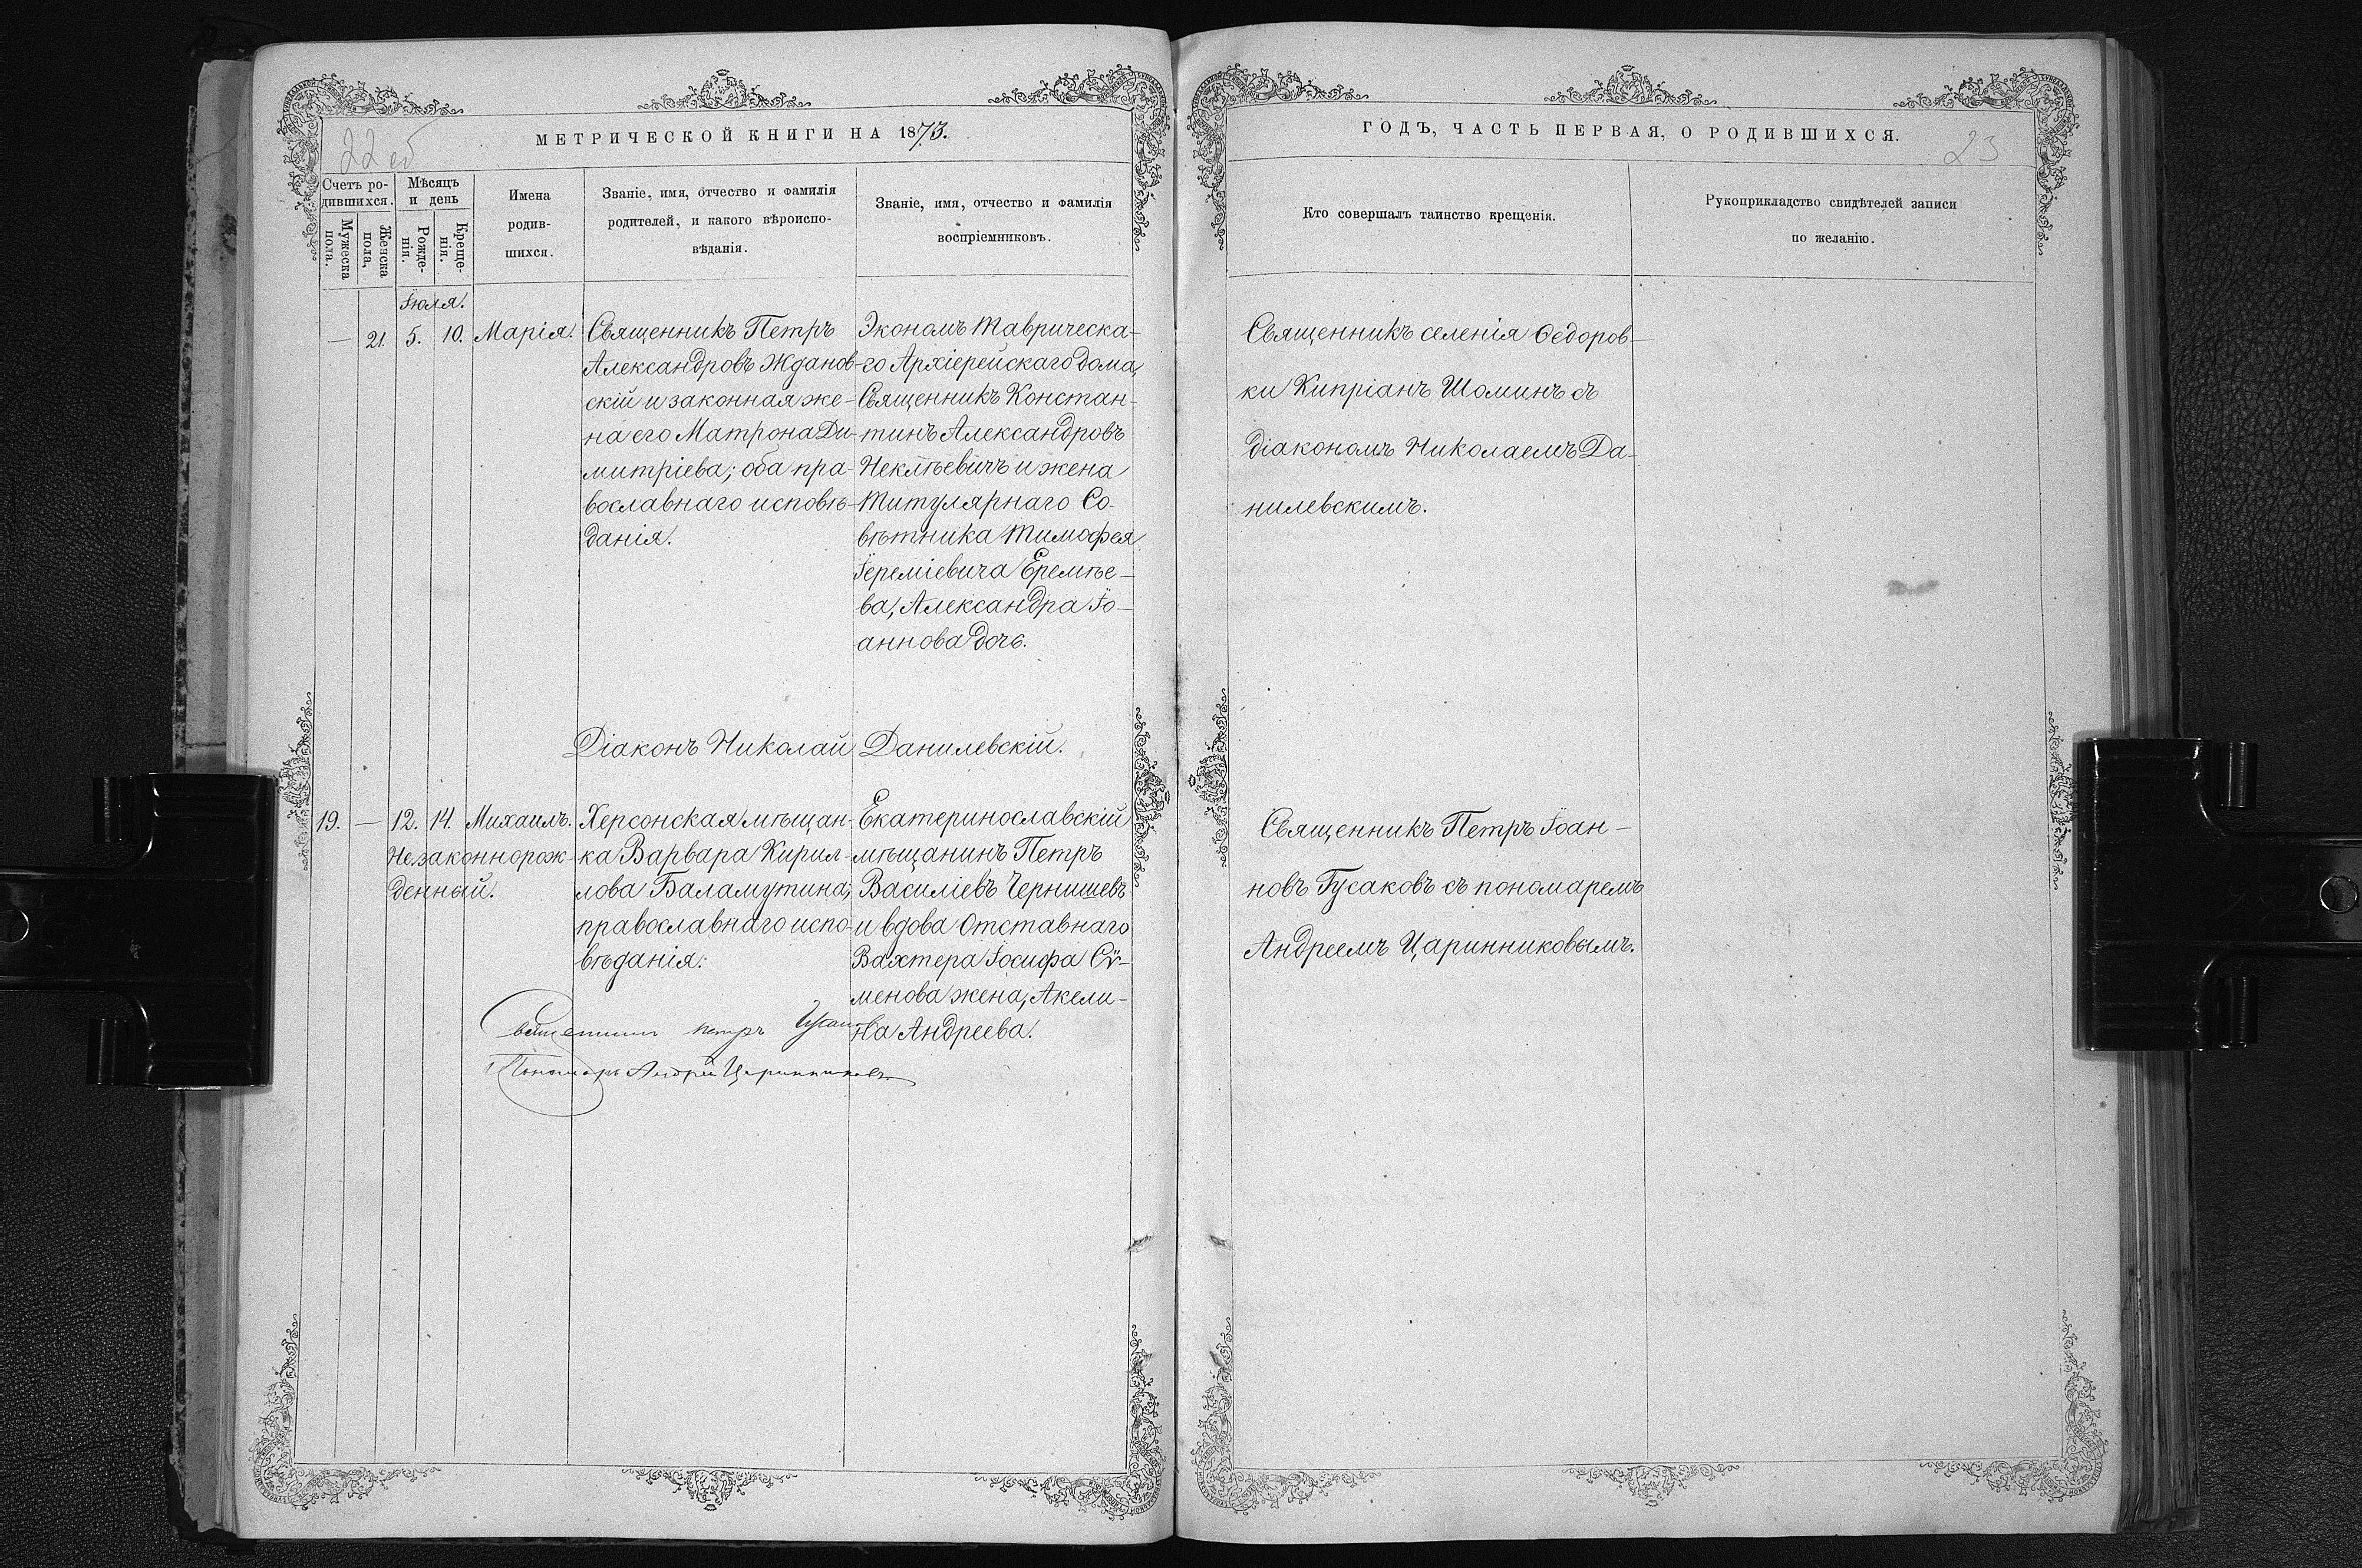 22 об
МЕТРИЧЕСКОЙ КНИГИ НА 1873.
Счетъ ро-
дившихся.
Мужеска
пола.
Женска
пола,
Мѣсяцъ
и день
Рожде-
нія.
Креще-
нія.
Имена
родив-
шихся.
Званіе, имя, отчество и фамилія
родителей, и какого вѣроиспо-
вѣданія.
Званіе, имя, отчество и фамилія
воспріемниковъ.
Іюля.
— 21. 5. 10. Марія.
Священникъ Петръ
Александровъ Жданов-
скій и законная же-
на его Матрона Ди-
митріева; оба пра-
вославнаго исповѣ-
данія.
Экономъ Таврическа-
го Архіерейскаго дома,
Священникъ Констан-
тинъ Александровъ
Неклѣевичъ и жена
Титулярнаго Со-
вѣтника Тимофея
Іереміевича Еремѣе-
ва, Александра Іо-
аннова дочь.
Діаконъ Николай Данилевскій.
19. — 12. 14. Михаилъ.
Незаконнорож-
денный.
Херсонская мѣщан-
ка Варвара Кирил-
лова Баламутина,
православнаго испо-
вѣданія.
Екатеринославскій
мѣщанинъ Петръ
Василіевъ Чернишевъ
и вдова Отставнаго
Вахтера Іосифа Сѵ-
менова жена, Акели-
на Андреева.
Священникъ Петръ Гусаковъ
Пономарь Андрей Царинниковъ.
ГОДЪ, ЧАСТЬ ПЕРВАЯ, О РОДИВШИХСЯ.
23
Кто совершалъ таинство крещенія.
Рукоприкладство свидѣтелей записи
по желанію.
Священникъ селенія Ѳедоров-
ки Кипріанъ Шоминъ съ
діакономъ Николаемъ Да-
нилевскимъ.
Священникъ Петръ Іоан-
новъ Гусаковъ съ пономаремъ
Андреемъ Царинниковымъ.